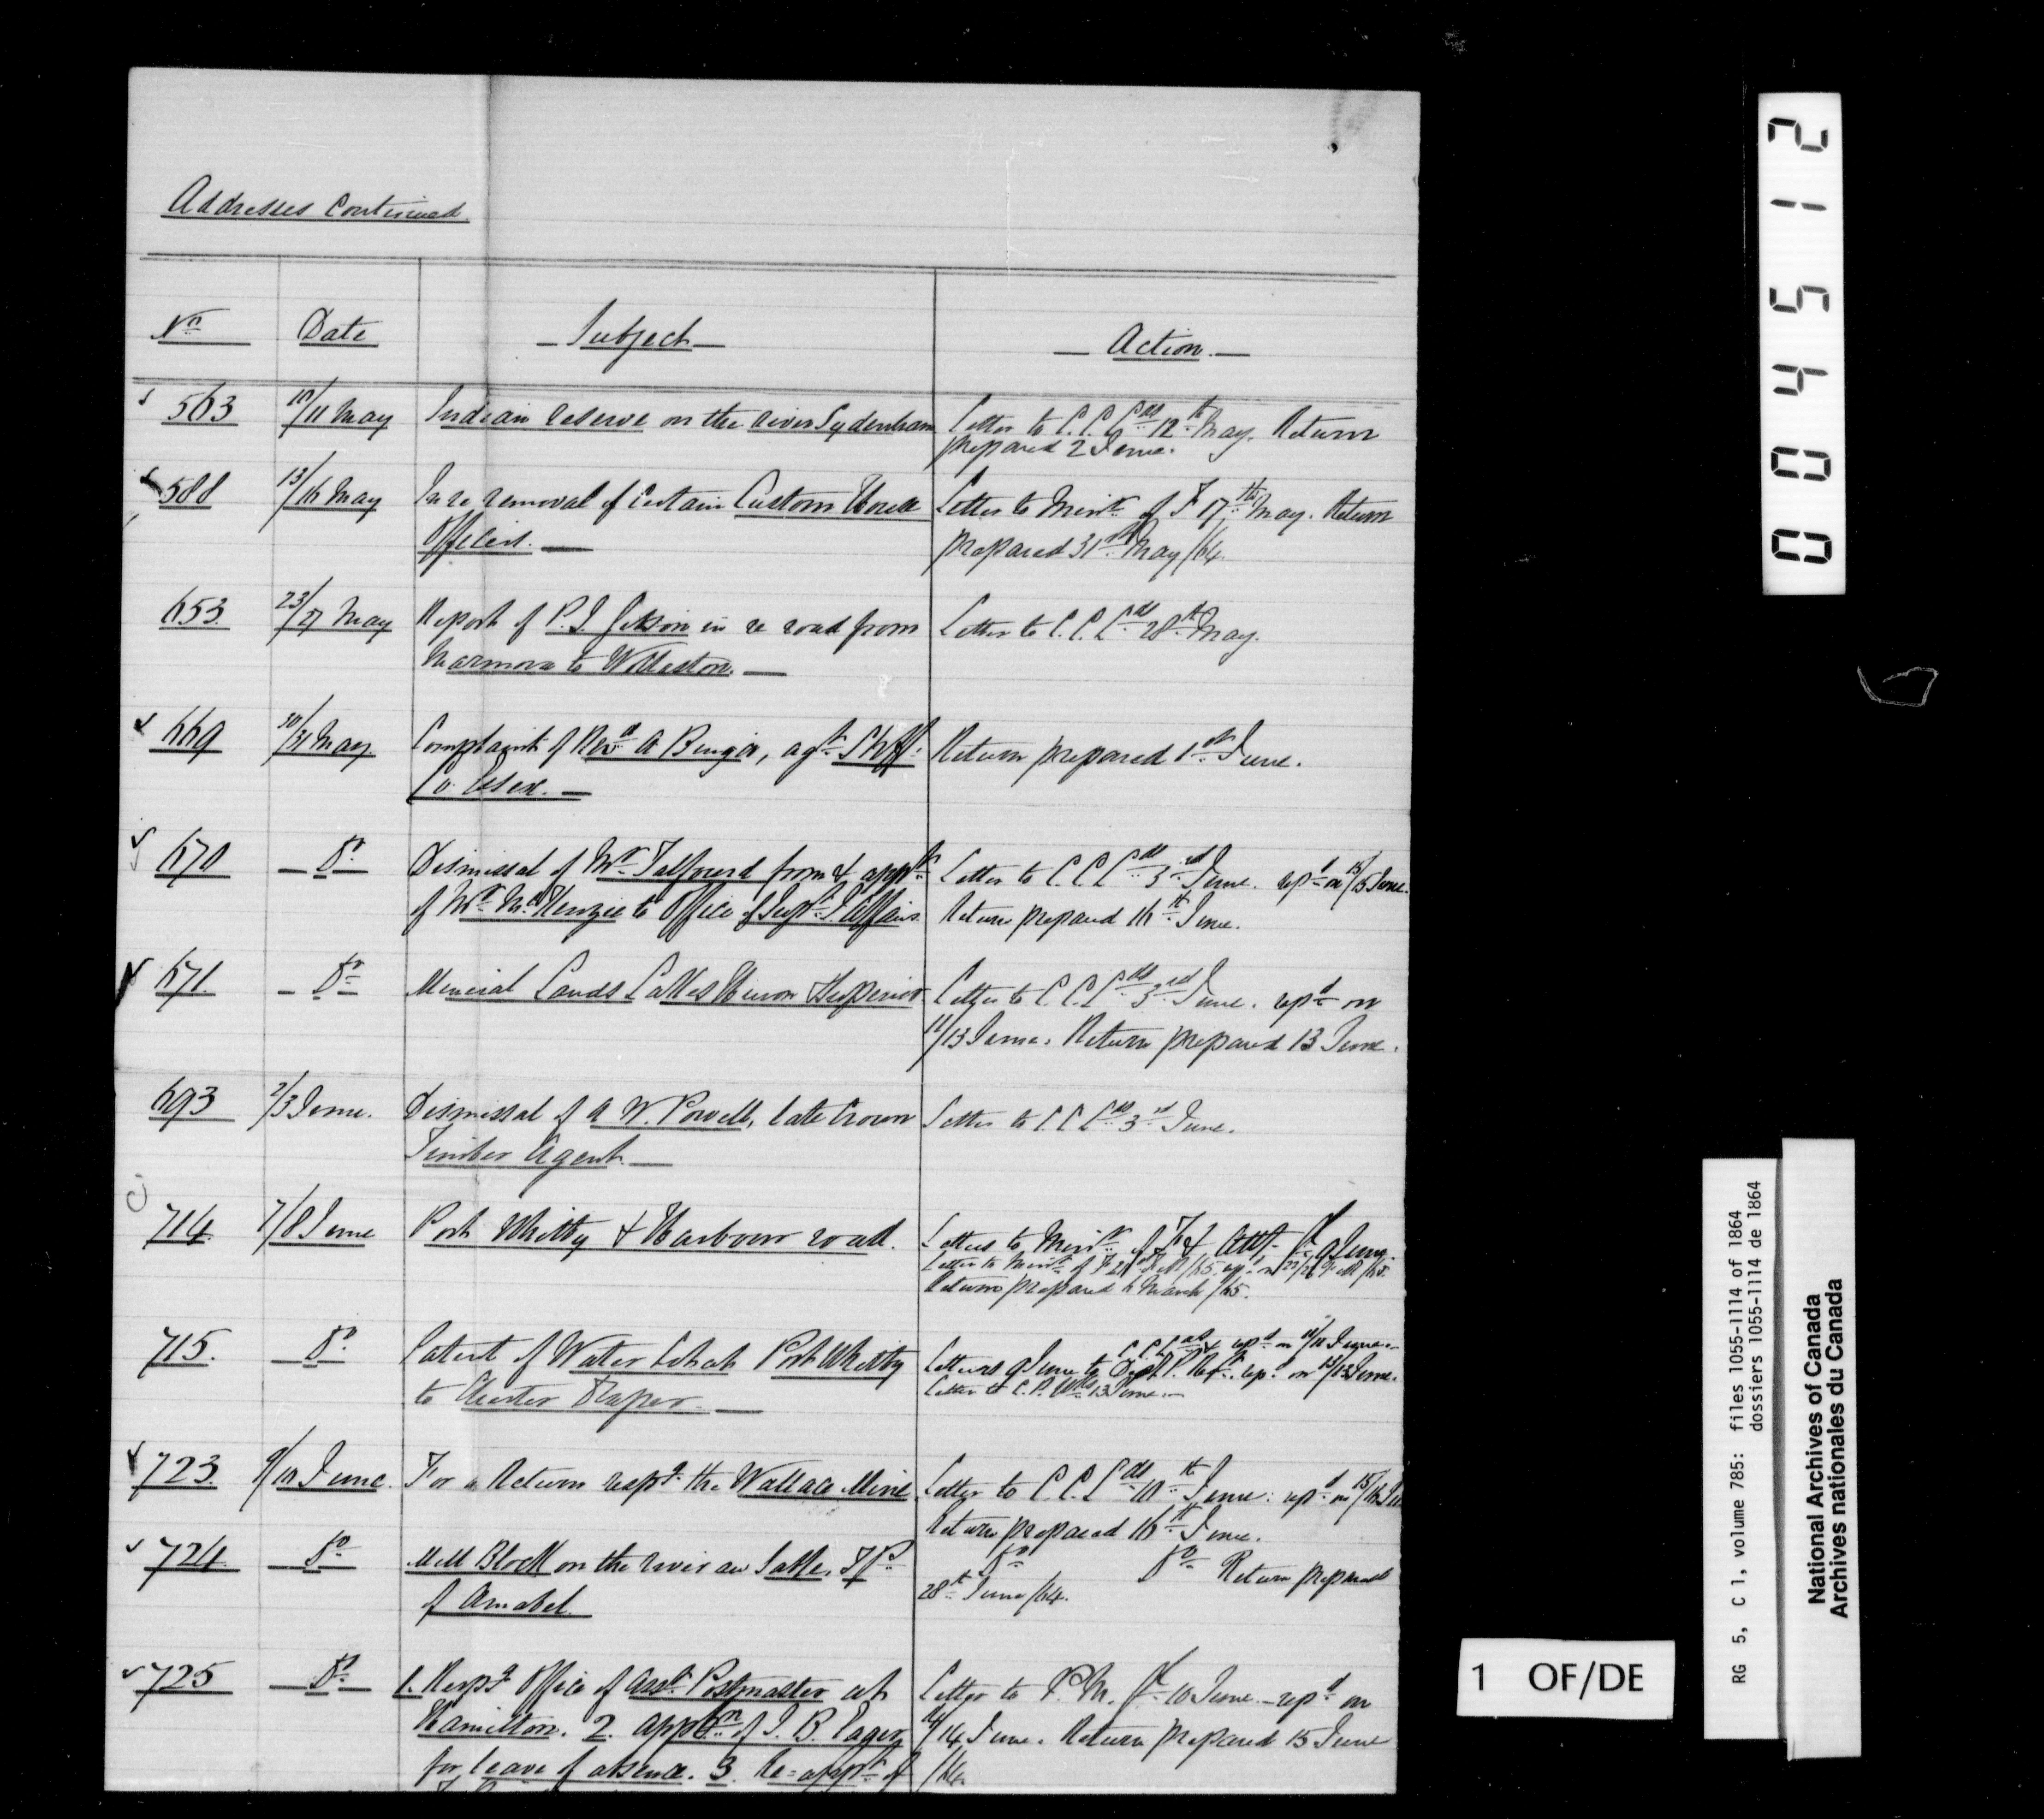 Addresses continued
No Date Subject Action
563 10/11 May Indian reserve on the river Sydenham Letter to C. C. Lds 12th May. Return
prepared 2 June.
588 13/16 May In re removal of certain Custom House Letter to Minr of F 17th May. Return
Officers. prepared 31st May /64
653 23/27 May Report of P. I. in re road from Letter to C. C. Lds 28th May.
Marmora to Wollaston.
669 30/31 May Complaint of Revd A agt Shff. Return prepared 1st June.
Co. Essex.
670 Do Dismissal of Mr Talfourd from & appt Letter to C. C. Lds 3rd June. repd on 15/15 June.
of Mr McKenzie to Office of Supt I. Affairs Return prepared 16th June.
671 Do Mineral Lands Lakes Huron & Superior Letter to C. C. Lds 3rd June. repd on
11/13 June. Return prepared 13 June.
693 2/3 June. Dismissal of A W. Powell, late Crown Letter to C. C. Lds 3rd June.
Timber Agent.
714 7/8 June Port Whitby & Harbour road. Letters to Minr of F & Atty Gl 9 June.
Letter to Minr of F 21 Feb /65. repd on 22/ Feb /65.
Return prepared 6 March /65.
715. Do Patent of Water Lots at Port Whitby C. C. Lds & repd on 11/11 June
Letters 9 June to Dept P. repd on 13/13 June.
to Chester Draper. Letter to C. P. Wks 13 June.
723. 9/10 June. For a Return respg the Wallace Mine Letter to C. C. Lds 10th June: repd on 15/16 June
Return prepared 16th June.
724 Do Mill Block on the river au Sable, TP Do Do Return prepared
of Amabel. 28th June /64.
725 Do 1. Respg Office of Asst. Postmaster at Letter to P. M. Gl 10 June repd on
Hamilton. 2. appln of J. B. Eager 14/14 June. Return prepared 15 June
for leave of absence. 3. Re-appt of /64.
004512
1 OF/DE
RG 5, C 1, volume 785: files 1055-1114 of 1864
dossiers 1055-1114 de 1864
National Archives of Canada
Archives nationales du Canada